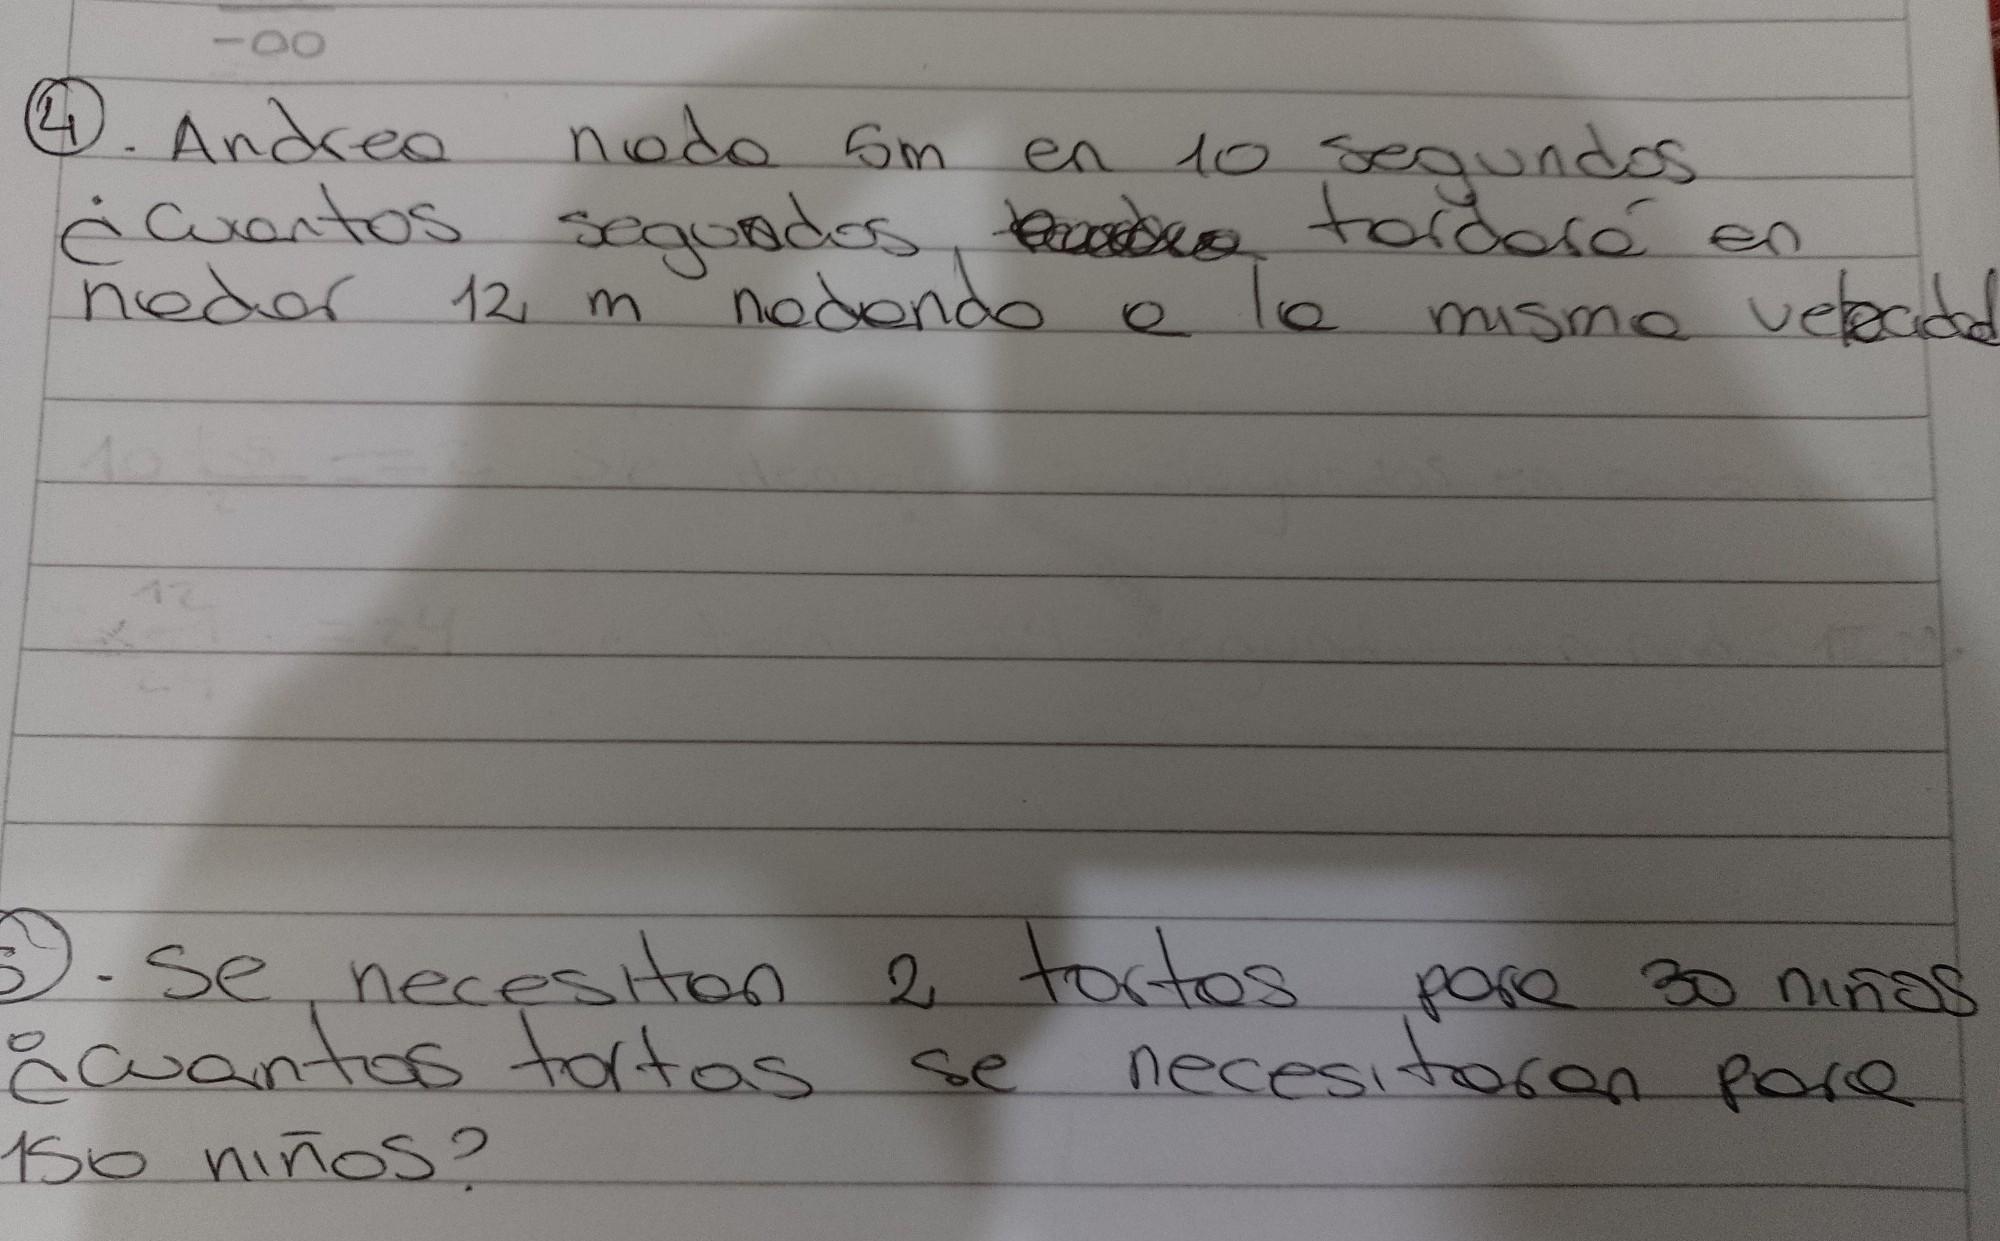 -00
4. Andrea nada 5m en 10 segundos
¿Cuantos segundos tardará en
nadar 12 m nadando a la misma velocidad
12
= 24
5. Se necesitan 2 tortas para 30 niños
¿Cuantas tortas se necesitaran para
150 niños?